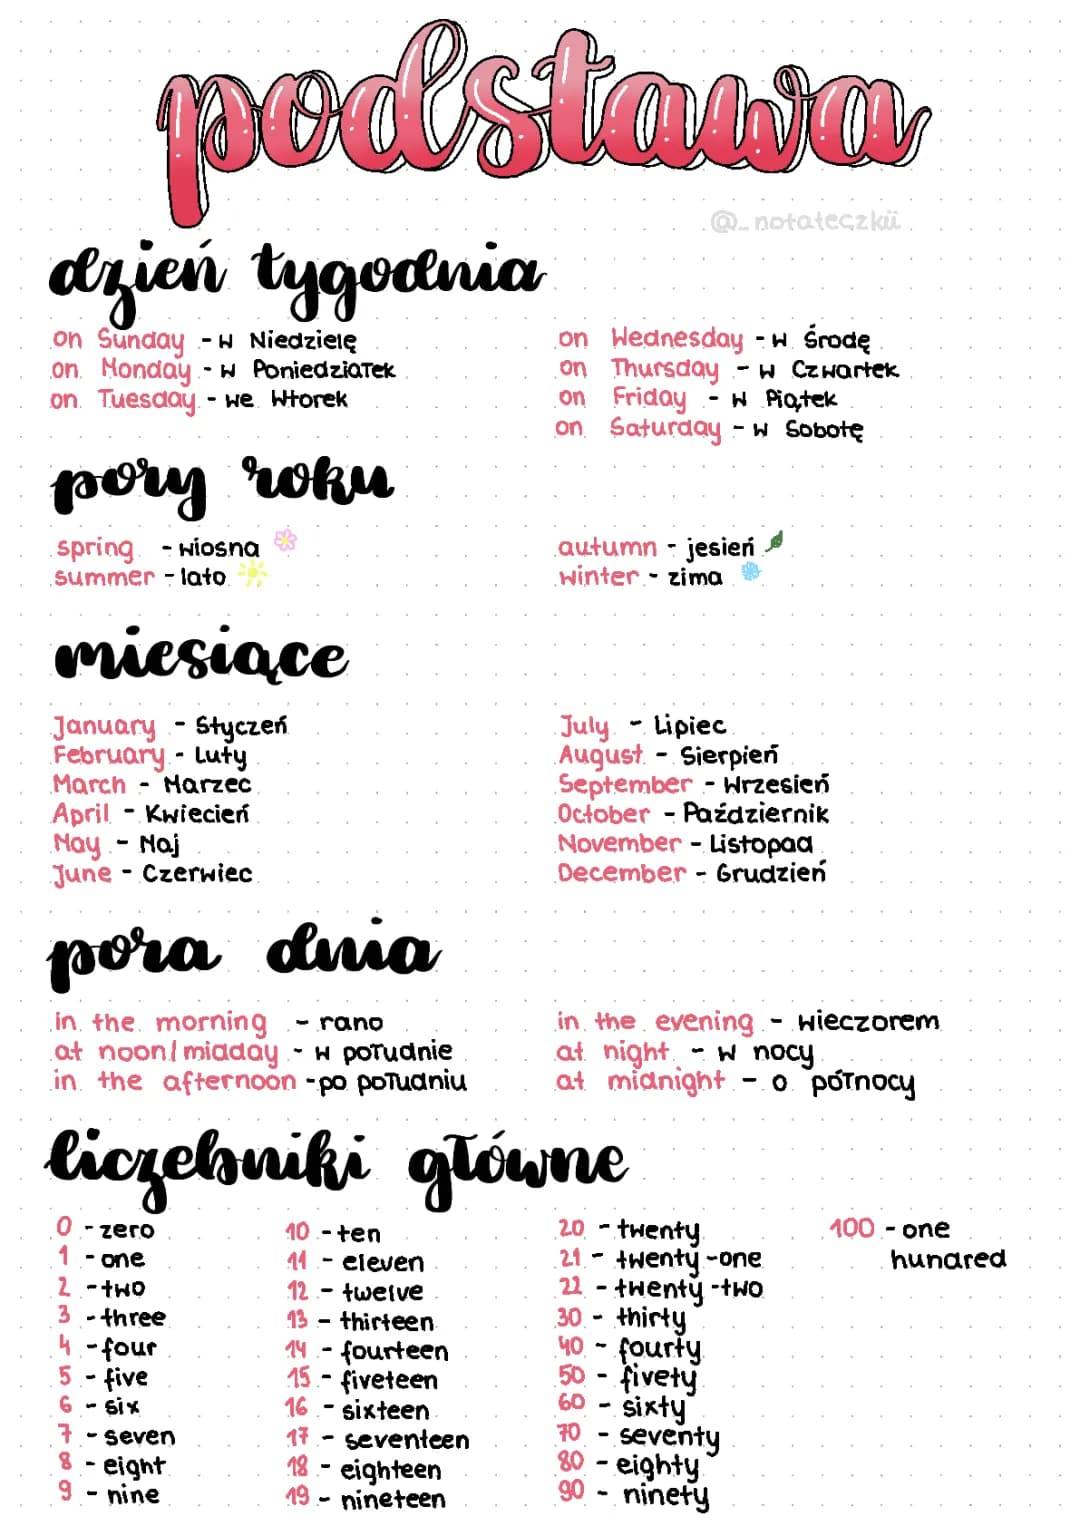 podstawa
@_notateczkii
dzień tygodnia
on Sunday - w Niedzielę
on Monday - w Poniedziałek
on Tuesday - we Wtorek
on Wednesday - w Środę
on Thursday - w Czwartek
on Friday - w Piątek
on Saturday - w Sobotę
pory roku
spring - wiosna
summer - lato
autumn - jesień
winter - zima
miesiące
January - Styczeń
February - Luty
March - Marzec
April - Kwiecień
May - Maj
June - Czerwiec
July - Lipiec
August - Sierpień
September - Wrzesień
October - Październik
November - Listopad
December - Grudzień
pora dnia
in the morning - rano
at noon/midday - w południe
in the afternoon - po południu
in the evening - wieczorem
at night - w nocy
at midnight - o północy
liczebniki główne
0 - zero
1 - one
2 - two
3 - three
4 - four
5 - five
6 - six
7 - seven
8 - eight
9 - nine
10 - ten
11 - eleven
12 - twelve
13 - thirteen
14 - fourteen
15 - fiveteen
16 - sixteen
17 - seventeen
18 - eighteen
19 - nineteen
20 - twenty
21 - twenty-one
22 - twenty-two
30 - thirty
40 - fourty
50 - fivety
60 - sixty
70 - seventy
80 - eighty
90 - ninety
100 - one
hundred